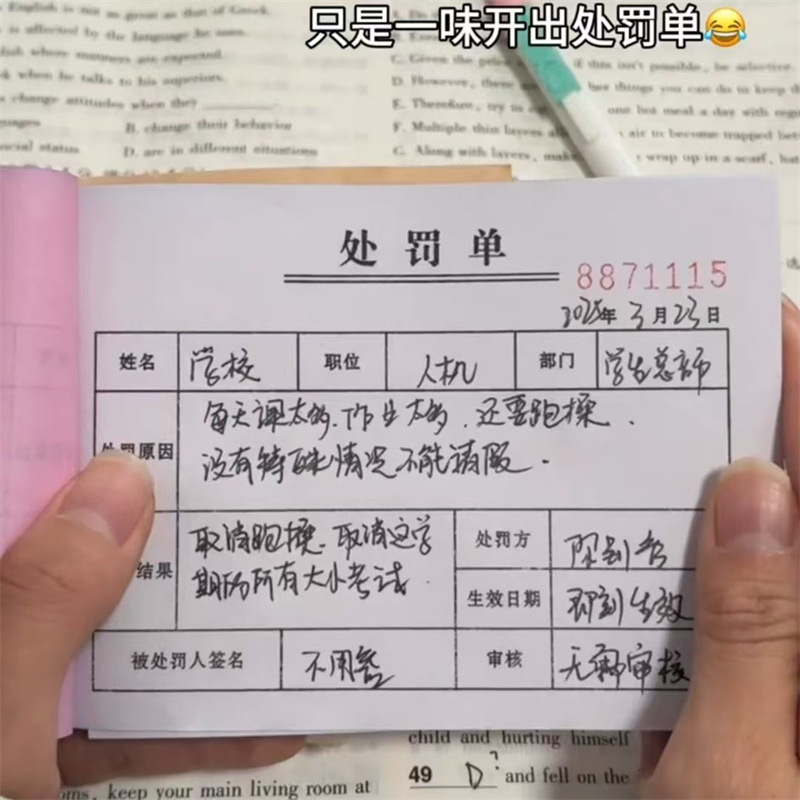 English is not as great as that of Greek.
is affected by the language he uses.
when he talks to his superiors.
change attitudes when they
B. change their behavior
D. are in different situations
只是一味开出处罚单😂
if this isn't possible, be selective.
D. However, these
her things you can do to keep th
E. Therefore, try to
one hot meal a day with
F. Multiple thin layers
air to become trapped betw
G. Along with layers, mak
wrap up in a scarf, hat
处罚单
8871115
2025年3月23日
姓名 学校 职位 人机 部门 学生总部
处罚原因 每天课太多、作业太多、还要跑操、
没有特殊情况不能请假.
结果 取消跑操、取消这学
期的所有大小考试.
处罚方
生效日期 即刻生效
被处罚人签名 不用签 审核 无需审核
child and hurting himself
49 D ? and fell on the
oms, keep your main living room at